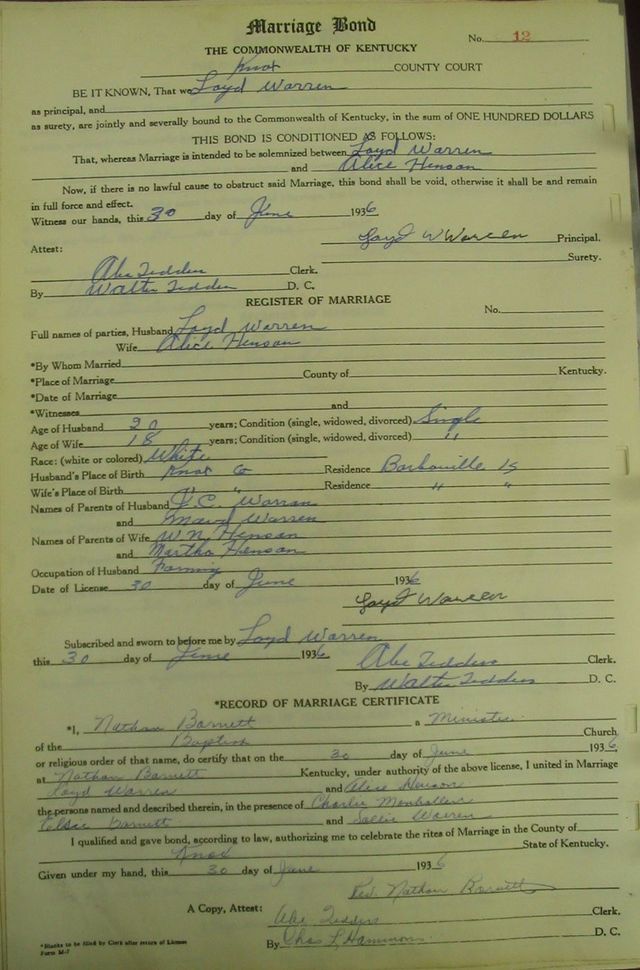 Marriage Bond
No. 12
THE COMMONWEALTH OF KENTUCKY
Knox COUNTY COURT
BE IT KNOWN, That we Loyd Warren
as principal, and
as surety, are jointly and severally bound to the Commonwealth of Kentucky, in the sum of ONE HUNDRED DOLLARS
THIS BOND IS CONDITIONED AS FOLLOWS:
That, whereas Marriage is intended to be solemnized between Loyd Warren
and Alice Henson
Now, if there is no lawful cause to obstruct said Marriage, this bond shall be void, otherwise it shall be and remain
in full force and effect.
Witness our hands, this 30 day of June 1936
Loyd W Warren Principal.
Attest: Surety.
Abe Tedders Clerk.
By Walter Tedders D. C.
REGISTER OF MARRIAGE
No.
Full names of parties, Husband Loyd Warren
Wife Alice Henson
*By Whom Married
*Place of Marriage County of Kentucky.
*Date of Marriage
*Witnesses and
Age of Husband 20 years; Condition (single, widowed, divorced) Single
Age of Wife 18 years; Condition (single, widowed, divorced) "
Race: (white or colored) White
Husband's Place of Birth Knox Co Residence Barbourville Ky
Wife's Place of Birth " " Residence " "
Names of Parents of Husband J.C. Warran
and Warren
Names of Parents of Wife W.N. Henson
and Martha Henson
Occupation of Husband Farming
Date of License 30 day of June 1936
Loyd Warren
Subscribed and sworn to before me by Loyd Warren
this 30 day of June 1936
Abe Tedders Clerk.
By Walter Tedders D. C.
*RECORD OF MARRIAGE CERTIFICATE
*I, Nathan Barnett a Minister
of the Baptist Church
or religious order of that name, do certify that on the 30 day of June 1936
at Nathan Barnett Kentucky, under authority of the above license, I united in Marriage
Loyd Warren and Alice Henson
the persons named and described therein, in the presence of Charlie
Elsie Barnett and Sallie Warren
I qualified and gave bond, according to law, authorizing me to celebrate the rites of Marriage in the County of
Knox State of Kentucky.
Given under my hand, this 30 day of June 1936
Rev. Nathan Barnett
A Copy, Attest: Abe Tedders Clerk.
By Chas L. Hammons D. C.
*Blanks to be filled by Clerk after return of License
Form M-7